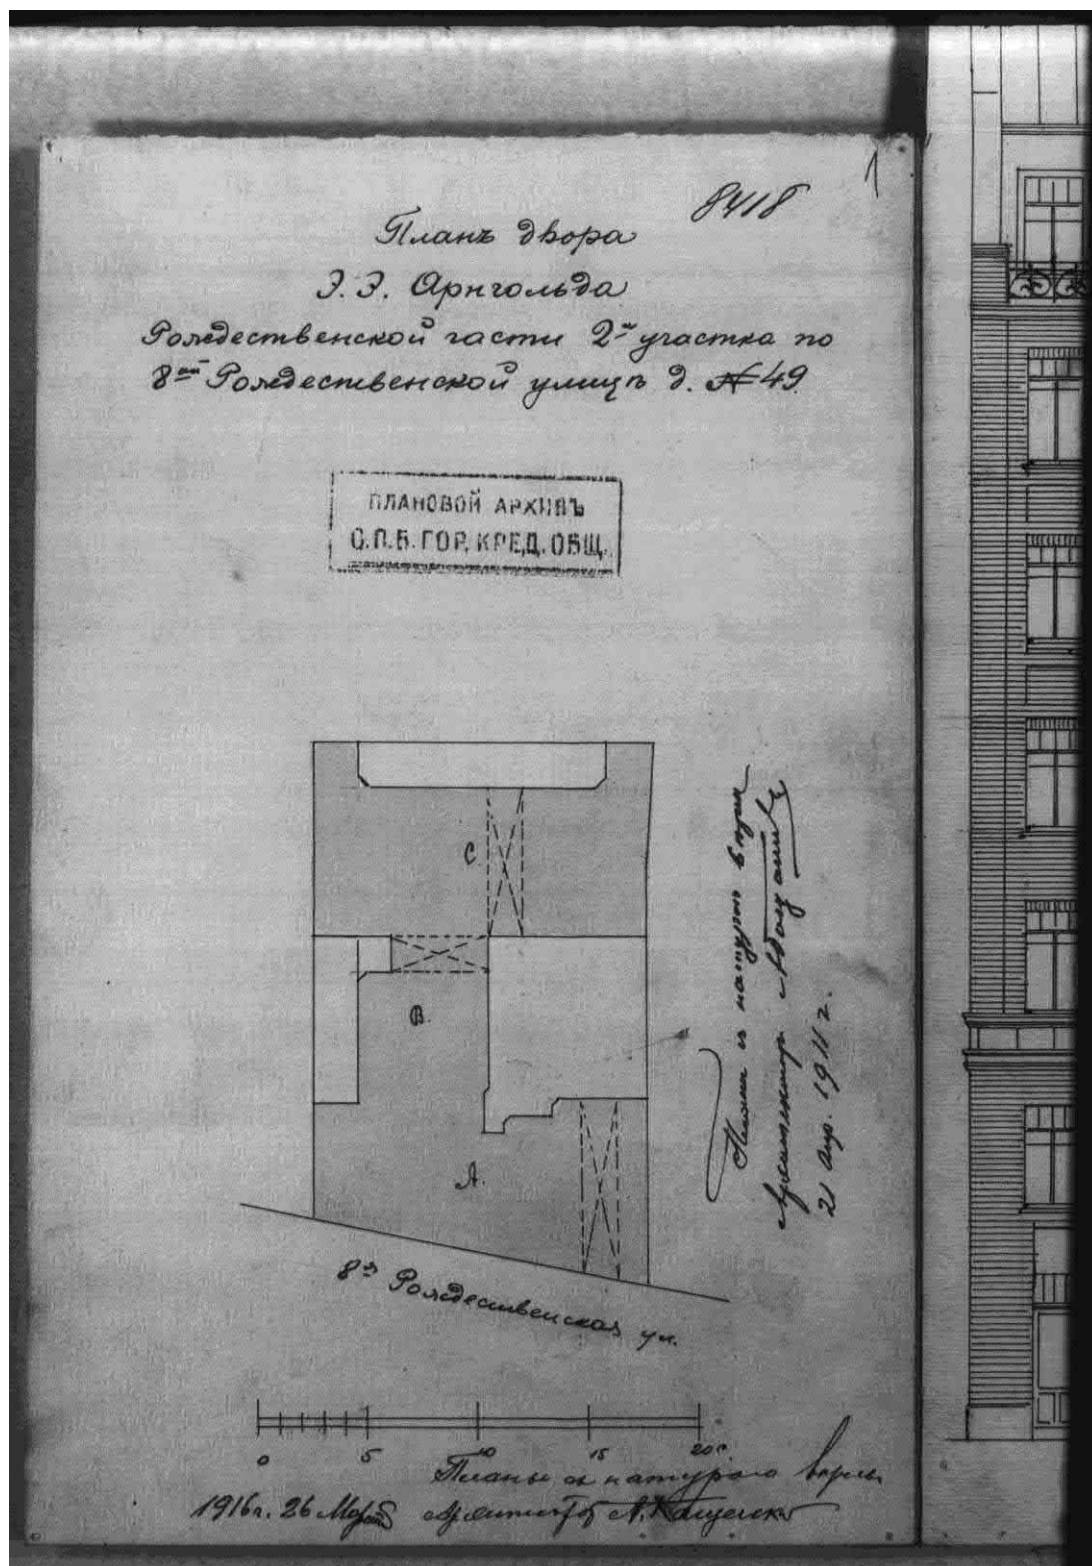 1
8418
Планъ двора
Э. Э. Арнгольда
Рождественской части 2го участка по
8ой Рождественской улицѣ д. № 49.
ПЛАНОВОЙ АРХИВЪ
С.П.Б. ГОР. КРЕД. ОБЩ.
С.
В.
А.
8я Рождественская ул.
Планъ съ натурою вѣренъ
Архитекторъ
21 апр. 1911 г.
0 5 10 15 20 с
Планъ съ натурою вѣренъ
1916 г. 26 Марта Архитекторъ А. Кащенко